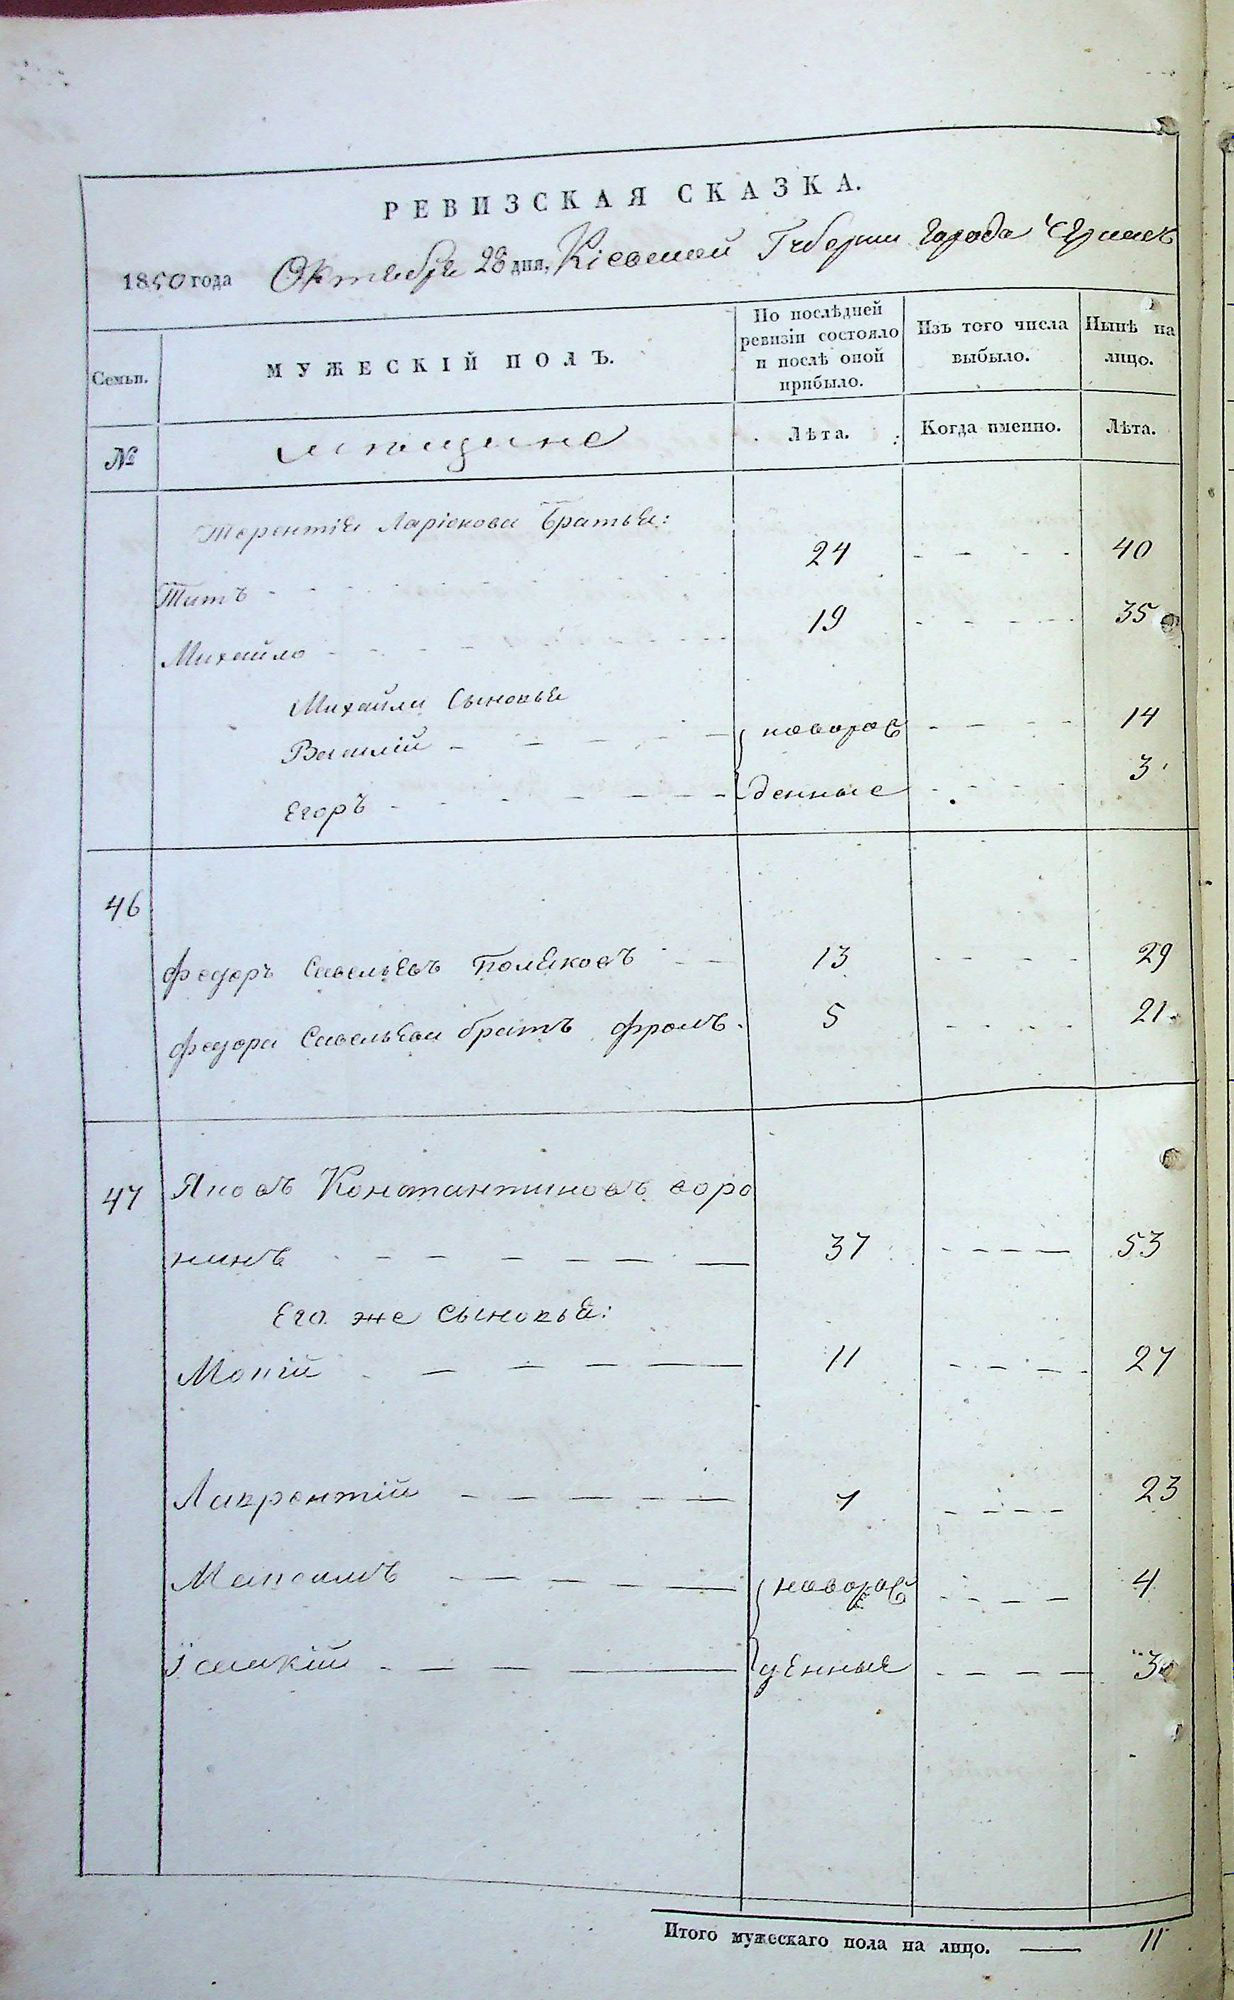 РЕВИЗСКАЯ СКАЗКА.
1850 года Октября 28 дня, Кіевской Губерніи Города Черкас
Семьи. МУЖЕСКІЙ ПОЛЪ. По послѣдней ревизіи состояло и послѣ оной прибыло. Изъ того числа выбыло. Нынѣ на лицо.
№ мѣщане Лѣта. Когда именно. Лѣта.
ТерентіяЛаріонова Братья:
Титъ 24 40
Михайло 19 35
Михайлы Сыновья
Василій новорож 14
Егоръ денные 3
46
Федоръ Савельевъ Поляковъ 13 29
Федора Савельева братъ Фролъ. 5 21
47 Яковъ Константиновъ Соро
кинъ 37 53
Его же сыновья:
Мокій 11 27
Лаврентій 7 23
Максимъ новорож 4
денныя 3
Итого мужескаго пола на лицо. 11